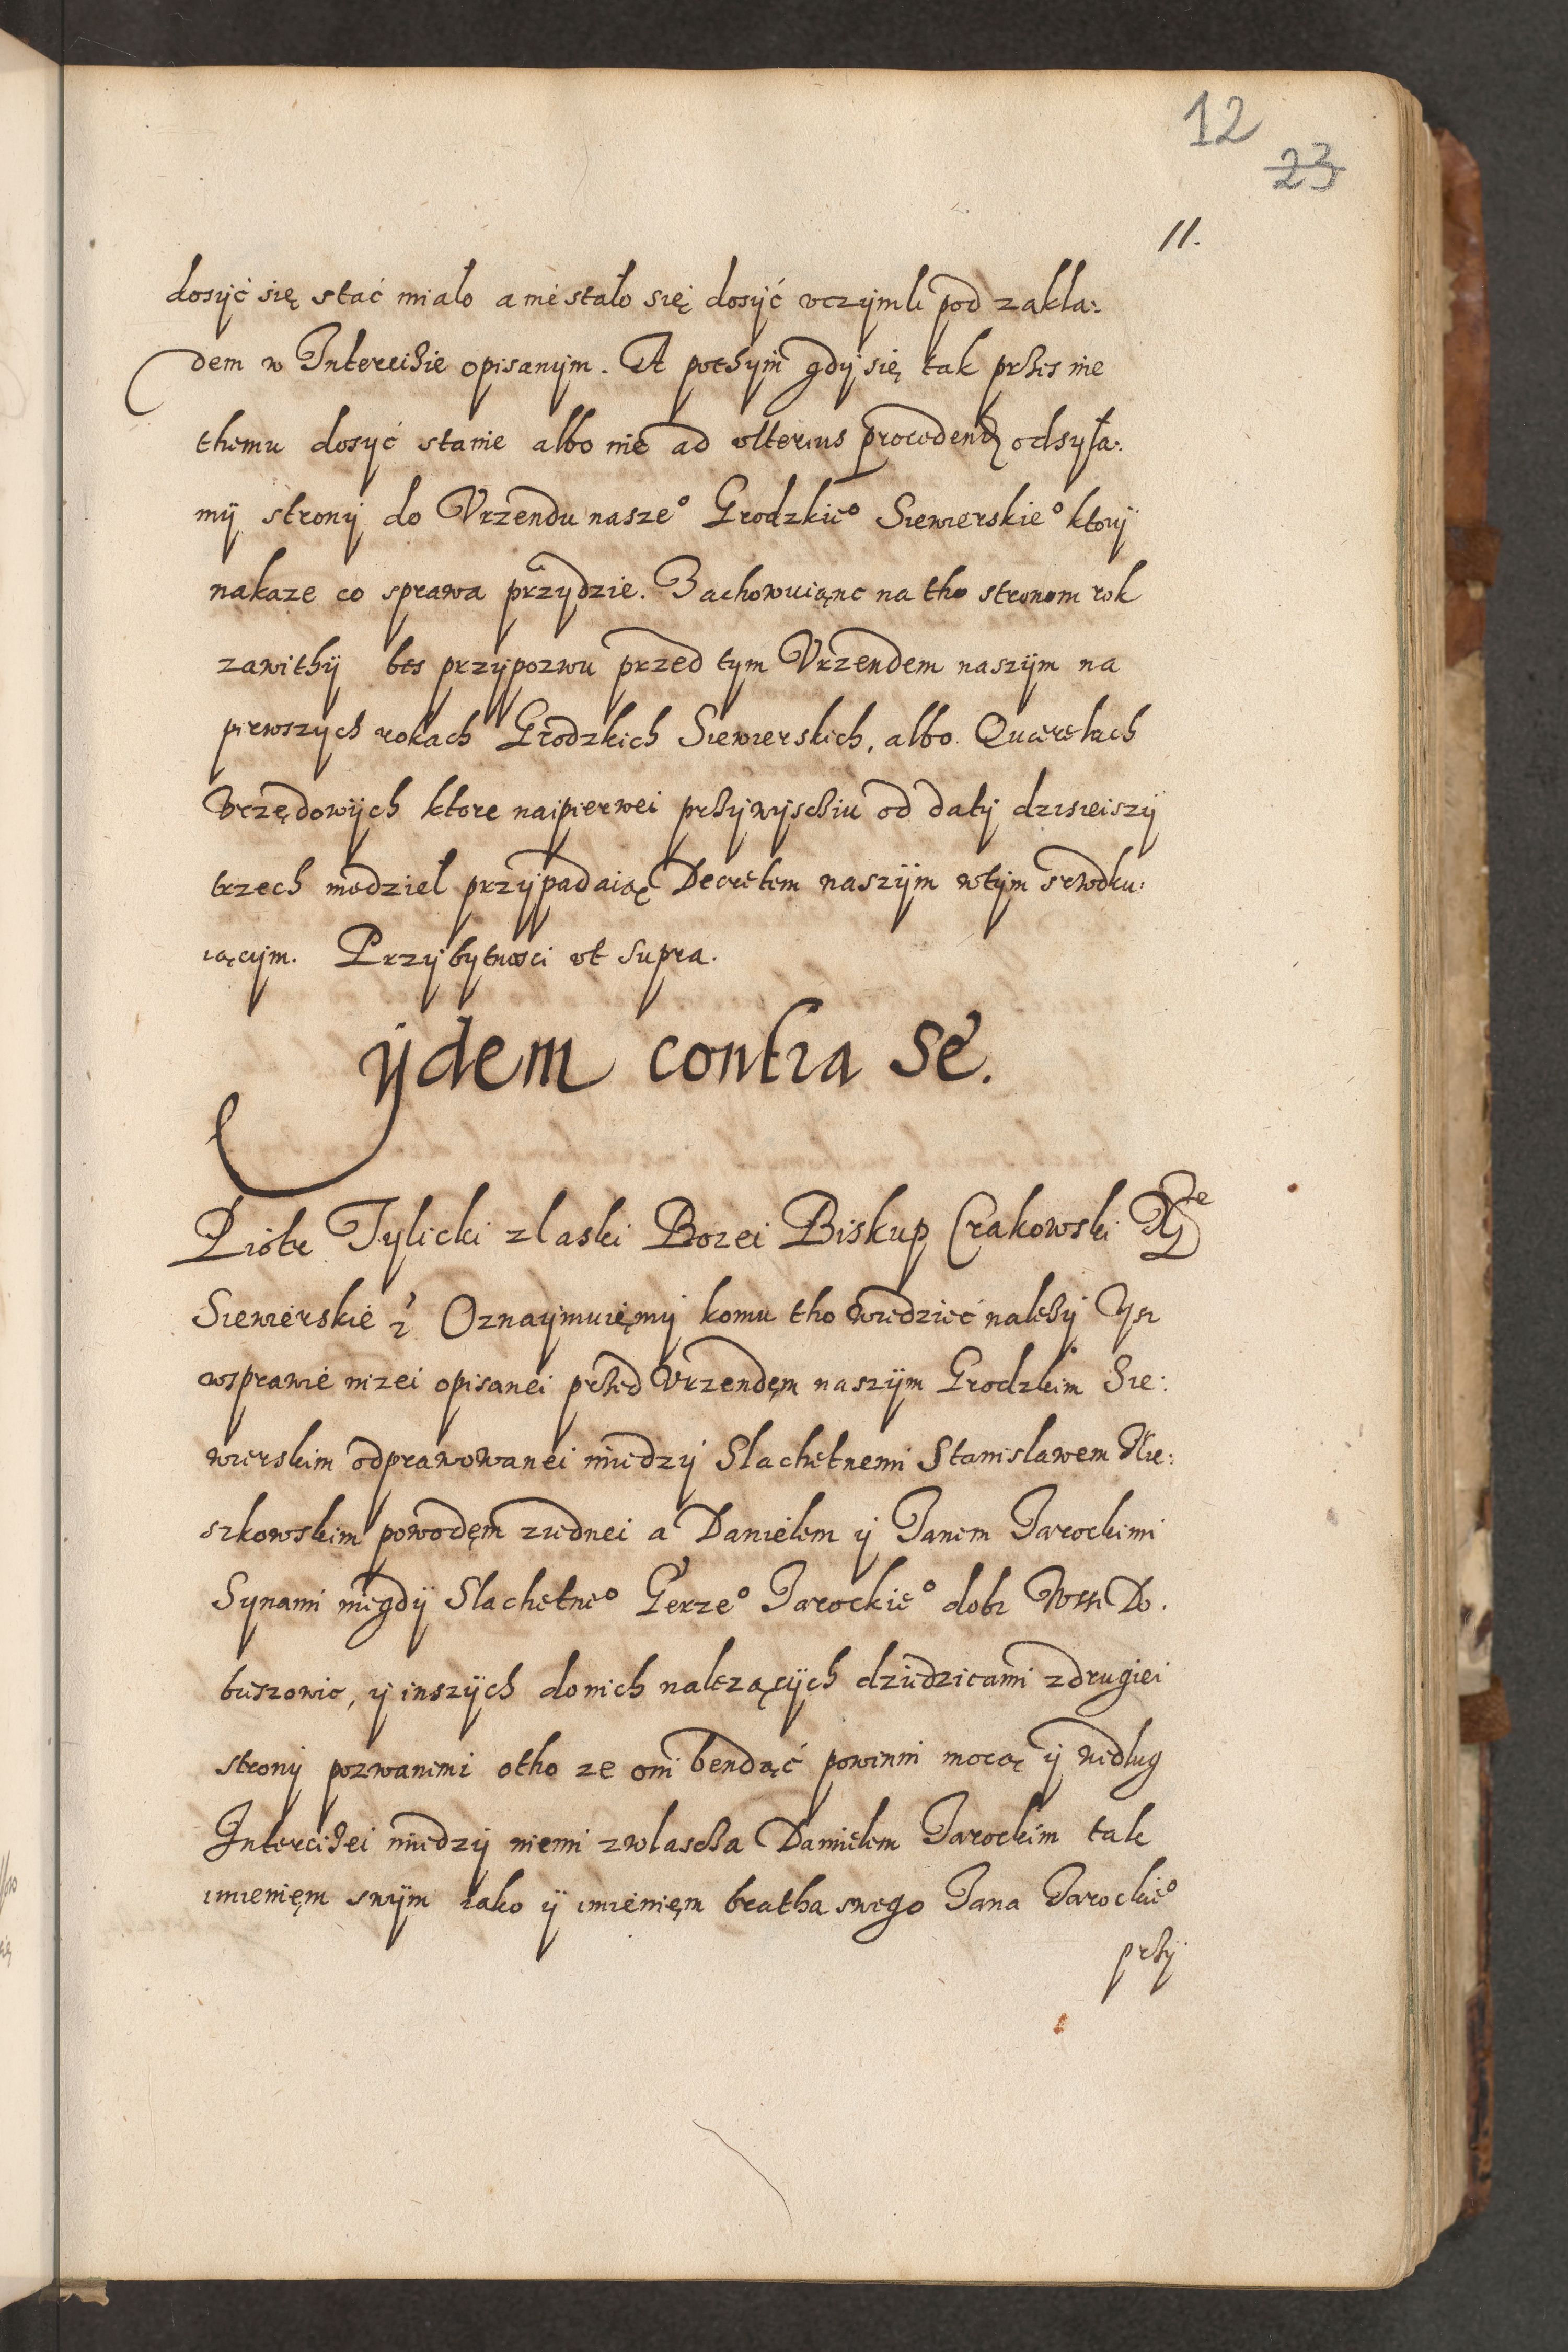 12
23
11.
dosyć się stać miało a niestało się dosyć vczynili pod zakla:
dem w Intercizie opisanym. A pothym gdy się tak przes nie
themu dosyć stanie albo nie ad vlterius procedend odsyła:
my strony do Vrzendu nasze° Grodzkie° Siewierskie° ktory
nakaze co sprawa przydzie. Zachowuiąnc na tho stronom rok
zawithy bes przypozwu przed tym Vrzendem naszym na
pierwszych rokach Grodzkich Siewierskich, albo Querelach
Vrzędowych ktore naipierwei przywysciu od daty dzisieiszy
trzech niedziel przypadaiąc Decretem naszym wtym
iącym. Przybytnosci vt supra.
ijdem contra se.
Piotr Tylicki z laski Bozei Biskup Crakowski
Siewierskie Oznaymuiemy komu tho wiedzieć nalezy Ysz
wsprawie nizei opisanei przed Vrzendem naszym Grodzkim Sie:
wierskim odprawowanei miedzy Slachetnemi Stanislawem Mie:
szkowskim powodem ziednei a Danielem y Janem Jarockimi
Synami niegdy Slachetne° Gerze° Jarockie° dobr Wssi Do.
buszowic, y inszych donich nalezących dziedzicami zdrugiei
strony pozwanemi otho ze oni bendąć powinni mocą y wedlug
Intercizei miedzy niemi zwlascza Danielem Jarockim tak
imieniem swym iako y imieniem bratha swego Jana Jarockie°
przy